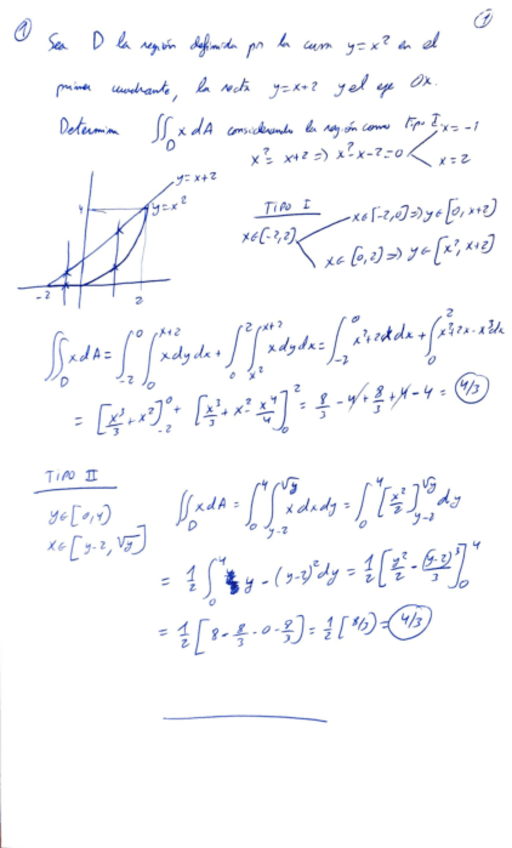 ① ①
Sea D la región definida por la curva y=x² en el
primer cuadrante, la recta y=x+2 y el eje Ox.
Determina ∬_D x dA considerando la región como tipo I.
x²=x+2 ⇒ x²-x-2=0 < x=-1
x=2
y=x+2
4 y=x²
-2 2
TIPO I
x∈[-2,2] < x∈[-2,0] ⇒ y∈[0,x+2]
x∈[0,2] ⇒ y∈[x²,x+2]
∬_D x dA = ∫_{-2}^{0} ∫_{0}^{x+2} x dy dx + ∫_{0}^{2} ∫_{x²}^{x+2} x dy dx = ∫_{-2}^{0} x²+2x dx + ∫_{0}^{2} x²+2x-x³ dx
= [x³/3 + x²]_{-2}^{0} + [x³/3 + x² - x⁴/4]_{0}^{2} = 8/3 - 4 + 8/3 + 4 - 4 = 4/3
TIPO II
y∈[0,4]
x∈[y-2, √y]
∬_D x dA = ∫_{0}^{4} ∫_{y-2}^{√y} x dx dy = ∫_{0}^{4} [x²/2]_{y-2}^{√y} dy
= 1/2 ∫_{0}^{4} y - (y-2)² dy = 1/2 [y²/2 - (y-2)³/3]_{0}^{4}
= 1/2 [8 - 8/3 - 0 - 8/3] = 1/2 [8/3] = 4/3